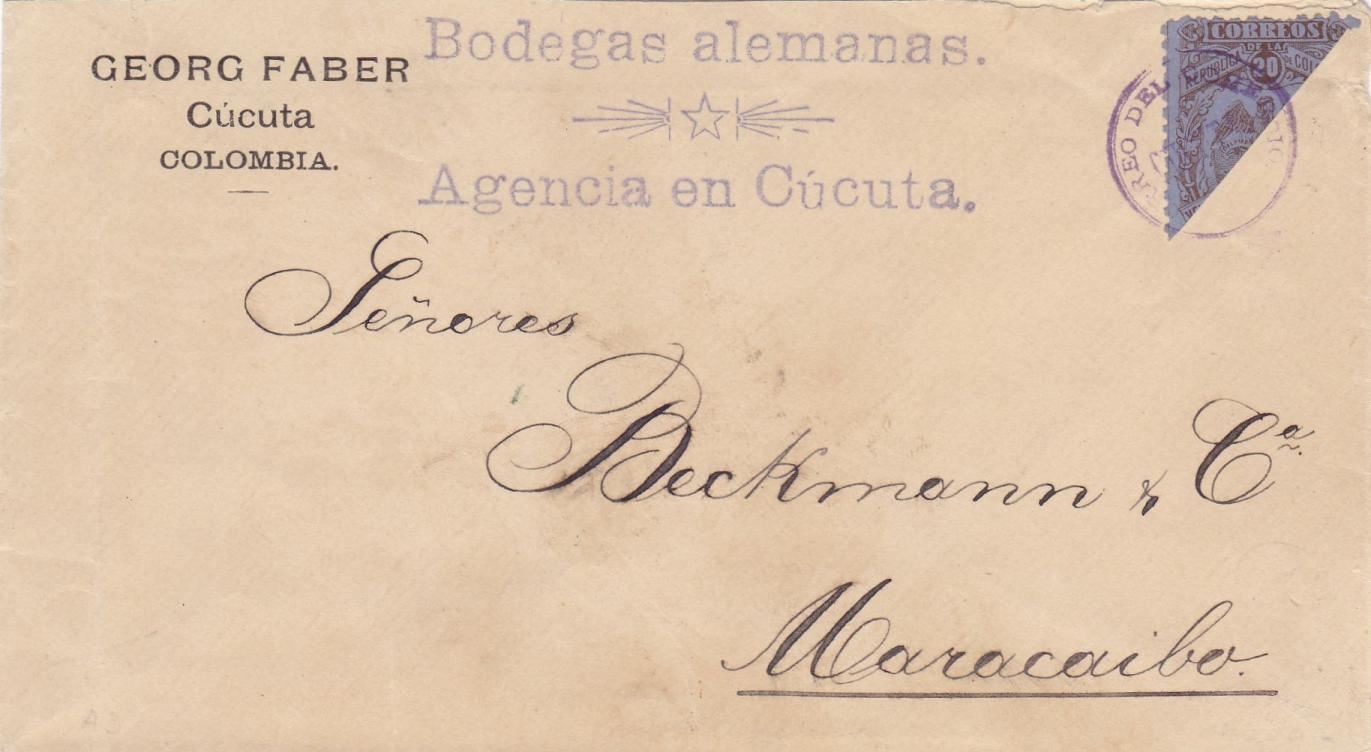 GEORG FABER
Cúcuta
COLOMBIA.
Bodegas alemanas.
Agencia en Cúcuta.
CORREOS
DE LA
REPUBLICA DE COL
20
REO DEL
Señores
Beckmann & Cª.
Maracaibo.